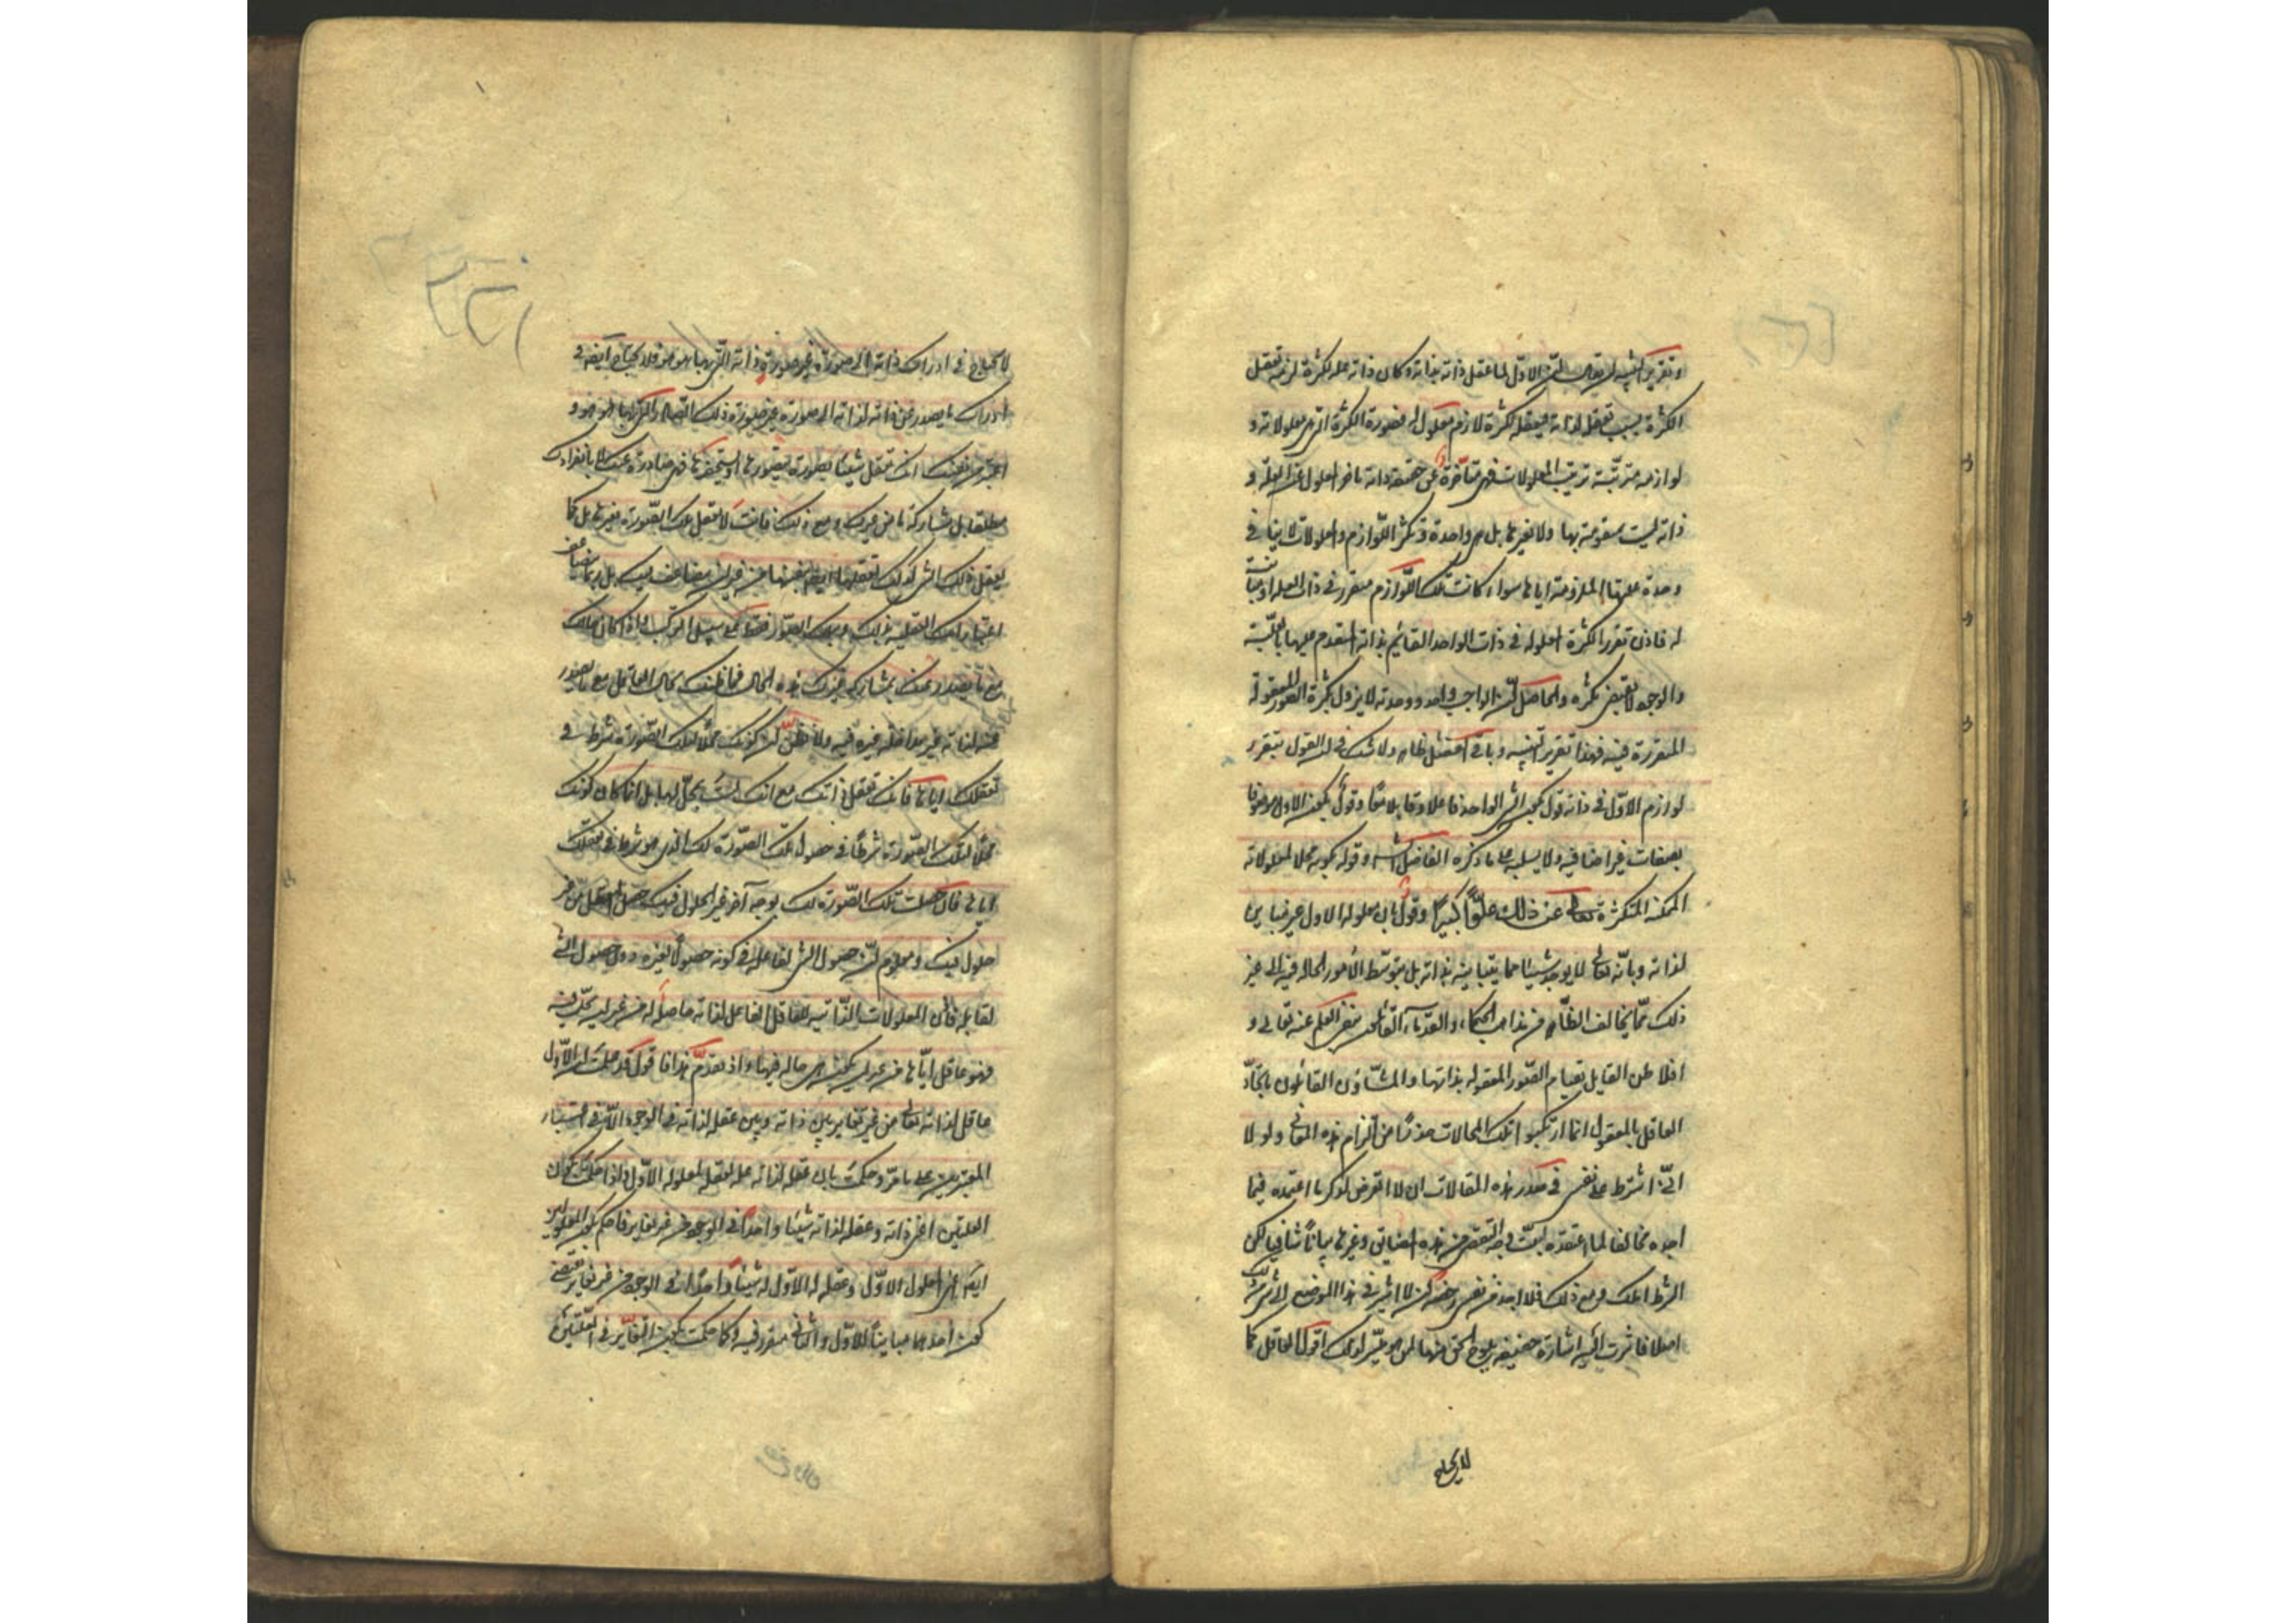 وتقرير التنبيه ان يقال ان الاول لما عقل ذاته بذاته وكان ذاته علة للكثرة لزمه تعقل
الكثرة بسبب تعقله لذاته فتعقله للكثرة لازم معلول له فصورة الكثرة التي هي معلولاته و
لوازمه مترتبة ترتيب المعلولات فهي متاخرة عن حقيقة ذاته تاخر المعلول عن العلة و
ذاته ليست بمتقومة بها ولا بغيرها بل هي واحدة وتكثر اللوازم والمعلولات لا ينافي
وحدة علتها الملزومة اياها سواء كانت تلك اللوازم متقررة في ذات العلة او مباينة
له فاذن تقرر الكثرة المعلولة في ذات الواحد القائم بذاته المتقدم عليها بالعلية
والوجود لا يقتضي تكثره والحاصل ان الواجب واحد ووحدته لا يزول بكثرة الصور المعقولة
المتقررة فيه فهذا تقرير التنبيه وباقي الفصل ظاهر ولا شك في ان القول بتقرر
لوازم الاول في ذاته قول بكون الشي الواحد فاعلا وقابلا معا وقول بكون الاول موصوفا
بصفات غير اضافيه ولا سلبيه على ما ذكره الفاضل الشارح وقول بكونه محلا لمعلولاته
الممكنة المتكثرة تعالى عن ذلك علوا كبيرا وقول بان معلوله الاول غير مباين
لذاته وبانه تعالى لا يوجد شيئا مما يباينه بذاته بل بتوسط الامور الحاله فيه الى غير
ذلك مما يخالف الظاهر من مذاهب الحكماء والقدماء القائلون بنفي العلم عنه تعالى و
افلاطن القايل بقيام الصور المعقوله بذاتها والمشاؤن القائلون باتحاد
العاقل بالمعقول انما ارتكبوا تلك المحالات حذرا من التزام هذه المعاني ولولا
اني اشترطت على نفسي في صدر هذه المقالات ان لا اتعرض لذكر ما اعتمده فيما
اجده مخالفا لما اعتقده لبينت وجه التقصي من هذه المضايق وغيرها بيانا شافيا لكن
الشرط املك ومع ذلك فلا اجد من نفسي رخصة ان لا اشير في هذا الموضع الى شي من ذلك
اصلا فاشرت اليه اشارة خفيفه يلوح الحق منها لمن هو ميسر لذلك اقول العاقل كما
لا يحتاج
لا يحتاج في ادراك ذاته الى صورة غير صورة ذاته التي بها هو هو فلا يحتاج ايضا في
ادراك ما يصدر عن ذاته لذاته الى صورة غير صورة ذلك الصادر التي بها هو هو و
اعتبر من نفسك انك تعقل شيئا بصورة تتصورها او تستحضرها فهي صادرة عنك لا بانفرادك
مطلقا بل بمشاركة ما من غيرك ومع ذلك فانت لا تعقل تلك الصورة بغيرها بل كما
تعقل ذلك الشي كذلك تعقلها ايضا بنفسها من غير ان يتضاعف فيك بل ربما يتضاعف
اعتباراتك المتعلقة بذلك وبتلك الصورة فقط على سبيل التركب واذا كان حالك
مع ما يصدر عنك بمشاركة غيرك هذه الحال فما ظنك بحال العاقل مع ما يصدر
عنه لذاته من غير مداخلة غيره فيه ولا تظنن ان كونك محلا لتلك الصورة شرط في
تعقلك اياها فانك تعقل ذاتك مع انك لست بمحل لها بل انما كان كونك
محلا لتلك الصورة شرطا في حصول تلك الصورة لك الذي هو شرط في تعقلك
اياها فان حصلت تلك الصورة لك بوجه آخر غير الحلول فيك حصل التعقل من غير
حلول فيك ومعلوم ان حصول الشي لفاعله في كونه حصولا لغيره ليس دون حصول الشي
لقابله فاذن المعلولات الذاتيه للعاقل الفاعل لذاته حاصلة له من غير ان تحل فيه
فهو عاقل اياها من غير ان يكون هي حالة فيها واذ تقدم هذا فاقول قد علمت ان الاول
عاقل لذاته تعالى من غير تغاير بين ذاته وبين عقله لذاته في الوجود الا في اعتبار
المعتبرين على ما مر وحكمت بان عقله لذاته علة لعقله لمعلوله الاول فاذا حكمت بكون
العلتين اعني ذاته وعقله لذاته شيئا واحدا في الوجود من غير تغاير فاحكم بكون المعلولين
ايضا اعني المعلول الاول وعقل الاول له شيئا واحدا في الوجود من غير تغاير يقتضي
كون احدهما مباينا للاول والثاني متقررا فيه وكما حكمت بكون التغاير في العلتين